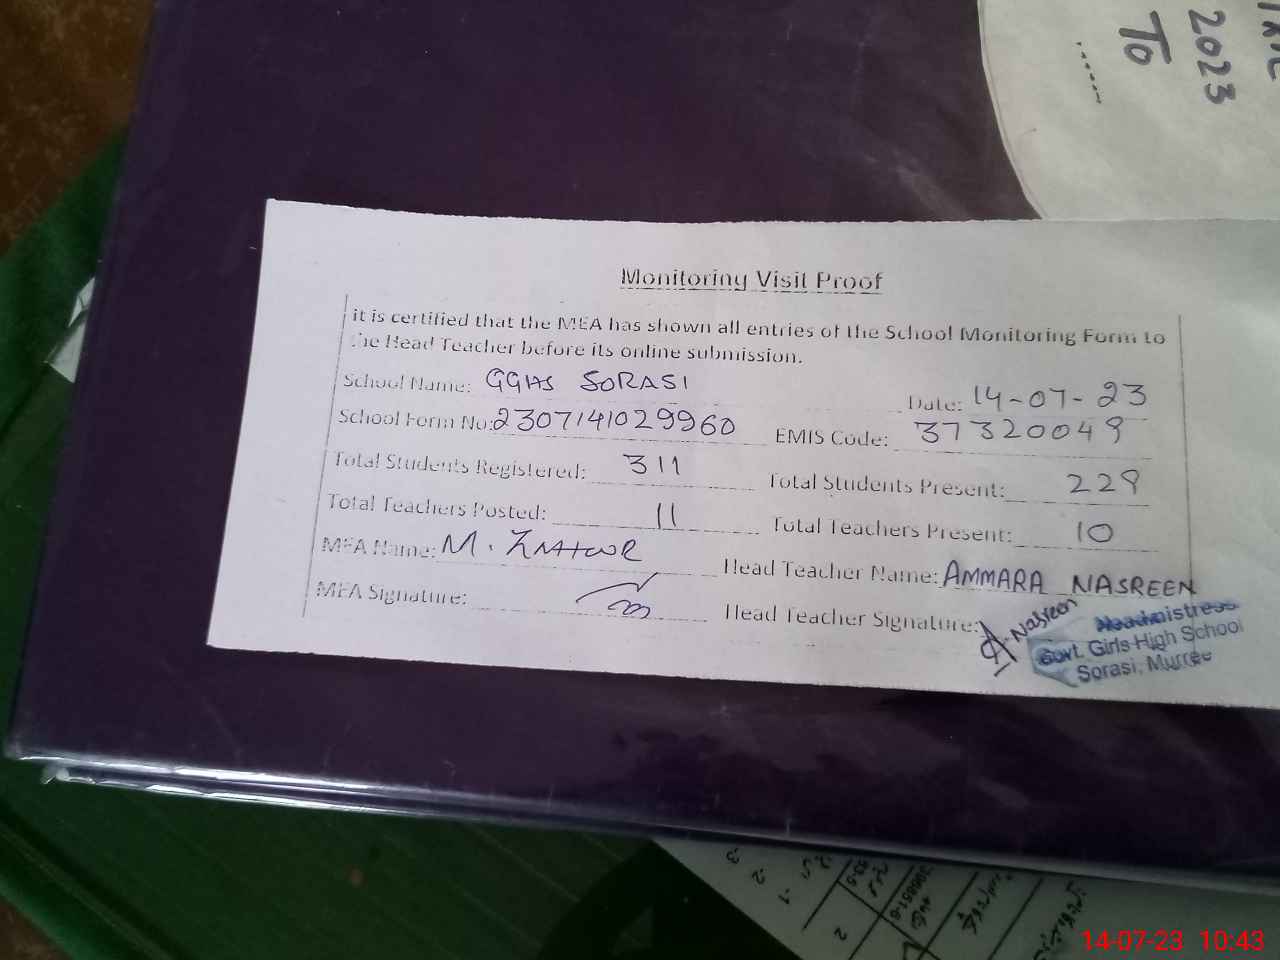 2023
TO
Monitoring Visit Proof
it is certified that the MEA has shown all entries of the School Monitoring Form to
the Head Teacher before its online submission.
School Name: GGHS SORASI Date: 14-07-23
School Form No: 2307141029960 EMIS Code: 37320049
Total Students Registered: 311 Total Students Present: 229
Total Teachers Posted: 11 Total Teachers Present: 10
MEA Name: M. Head Teacher Name: AMMARA NASREEN
MEA Signature: Head Teacher Signature: A. Nasreen
Headmistress
Govt. Girls High School
Sorasi, Murree
14-07-23 10:43